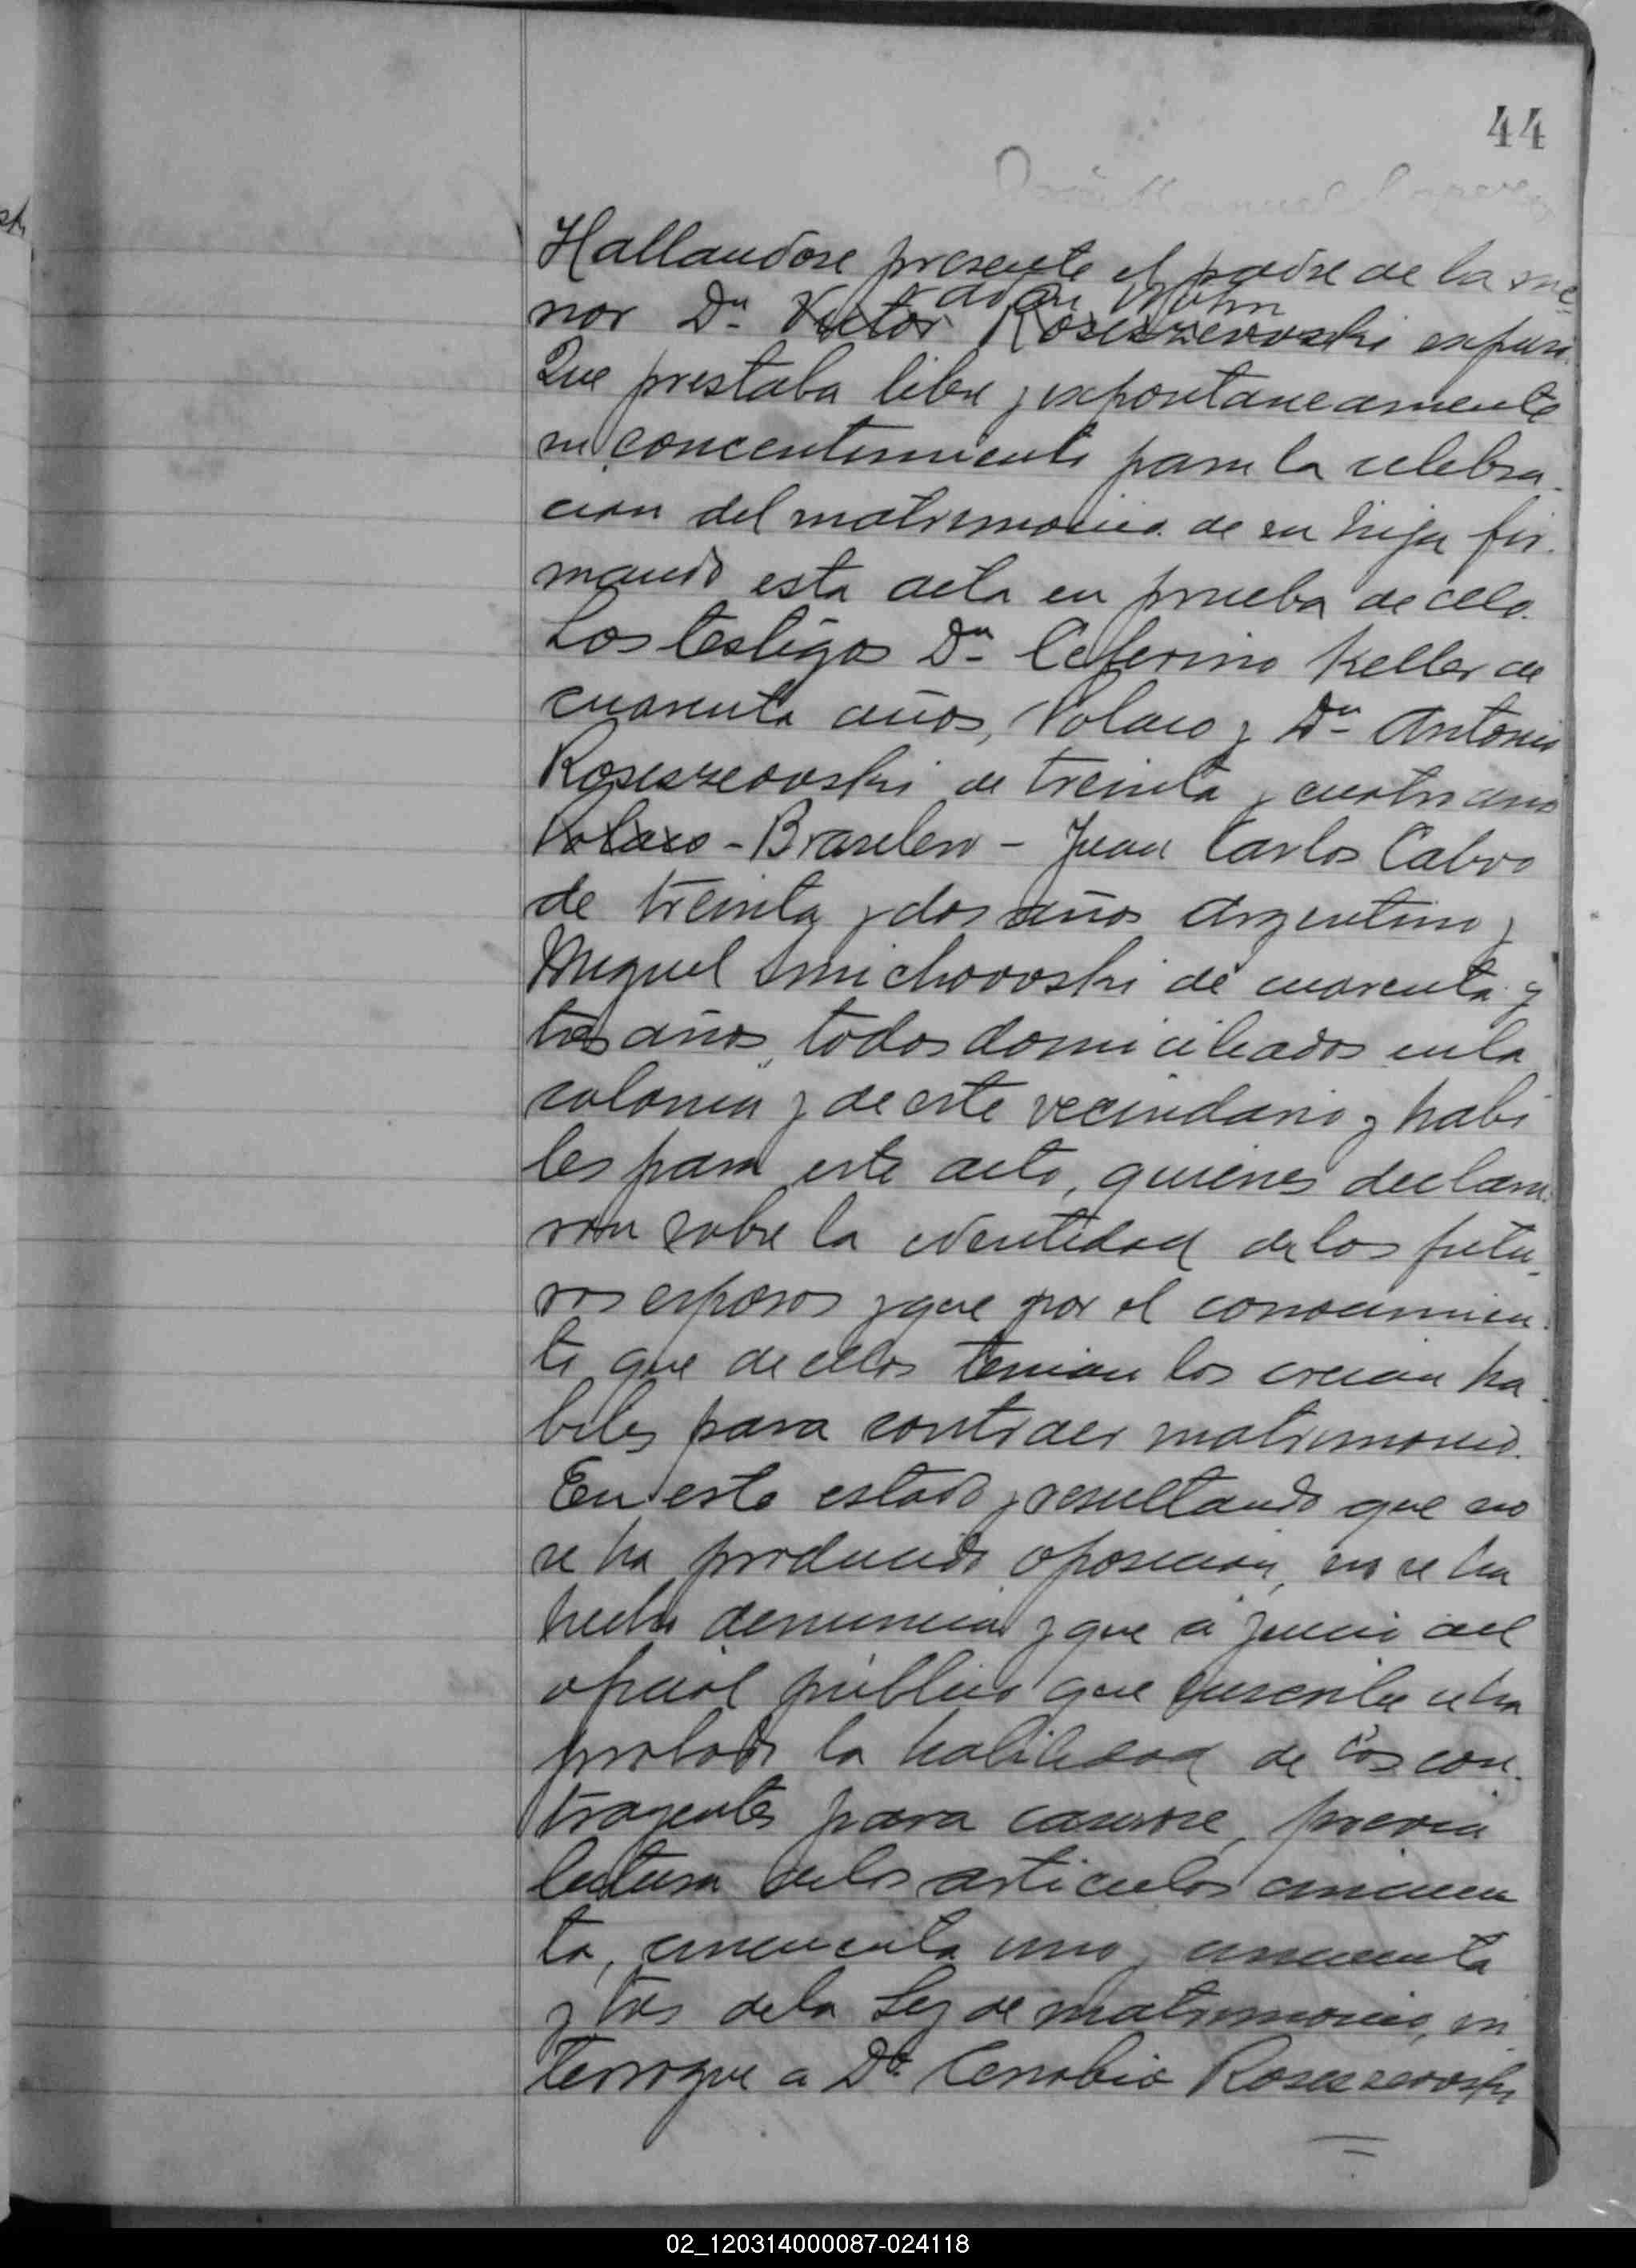 44
Hallandose presente el padre de la me
nor Dn Victor Roseszevoski expuso
Que prestaba libre y expontaneamente
su concentimiento para la celebra-
cion del matrimonio de su hija fir-
mando esta acta en prueba de ello.
Los testigos Dn Ceferino Keller de
cuarenta años, Polaco y Dn Antonio
Roseszevoski de treinta y cuatro años
Polaco - Brasilero - Juan Carlos Cabro
de treinta y dos años Argentino y
Miguel Smichovoski de cuarenta y
tres años, todos domiciliados en la
colonia y de este vecindario y habi
les para este acto, quienes declara-
ron sobre la identidad de los futu-
ros esposos y que por el conocimien-
to que de ellos tenian los creian ha-
biles para contraer matrimonio.
En este estado y resultando que no
se ha producido oposicion, no se ha
hecho denuncia y que á juicio del
oficial público que suscribe se ha
probado la habilidad de los con-
trayentes para casarse, previa
lectura de los articulos cincuen
ta, cincuenta uno y cincuenta
y tres de la Ley de matrimonio, in
terrogue a Da Cenobia Roseszevoski
02_120314000087-024118